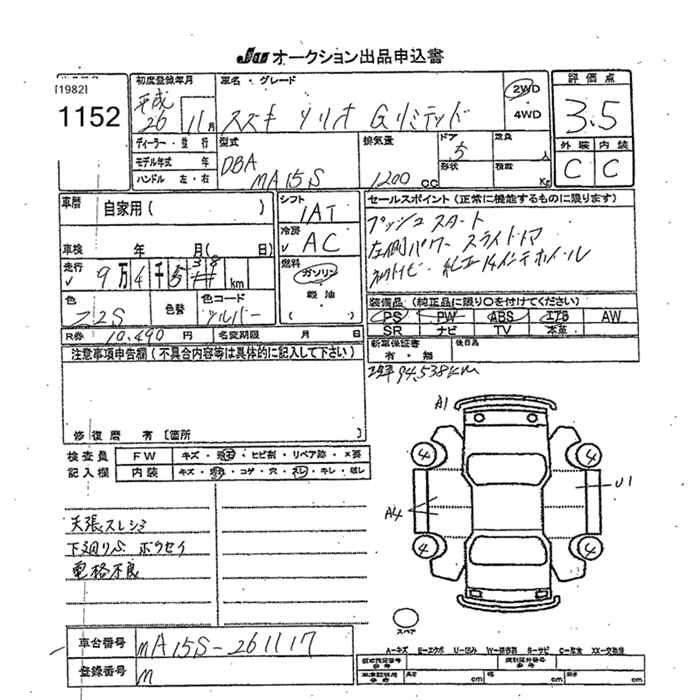 JU オークション出品申込書
[1982]
1152
初度登録年月
平成 26 年 11 月
車名・グレード
スズキ ソリオ Gリミテッド
2WD
4WD
評価点
3.5
外装 内装
C C
ディーラー・並行
モデル年式 年
ハンドル 左・右
型式
DBA
MA15S
排気量
1200 cc
ドア
5
形状
定員 人
積載 Kg
車歴 自家用( )
車検 年 月( 日)
走行 9万4千5 km
シフト
1AT
冷房
AC
燃料
ガソリン
軽油
( )
セールスポイント(正常に機能するものに限ります)
プッシュスタート
左側パワースライドドア
純正14インチホイール
色
Z2S
色替
色コード
シルバー
装備品(純正品に限り○を付けてください)
PS PW ABS エアB AW
SR ナビ TV 本革
R券 10,490 円 名変期限 月 日
新車保証書
有・無
後日品
注意事項申告欄(不具合内容等は具体的に記入して下さい)
94,538km
修復歴 有[箇所 ]
検査員
記入欄
FW キズ・飛石・ヒビ割・リペア跡・X要
内装 キズ・汚れ・コゲ・穴・スレ・キレ・破レ
天張スレシミ
下廻りサビ ボウセイ
電格不良
A1
4 4
A4
U1
4 4
スペア
車台番号 MA15S-261117
登録番号 m
A-キズ E-エクボ U-凹み W-補修跡 S-サビ C-腐食 XX-交換済
型式指定番号
類別区分番号
長さ cm 幅 cm 高さ cm